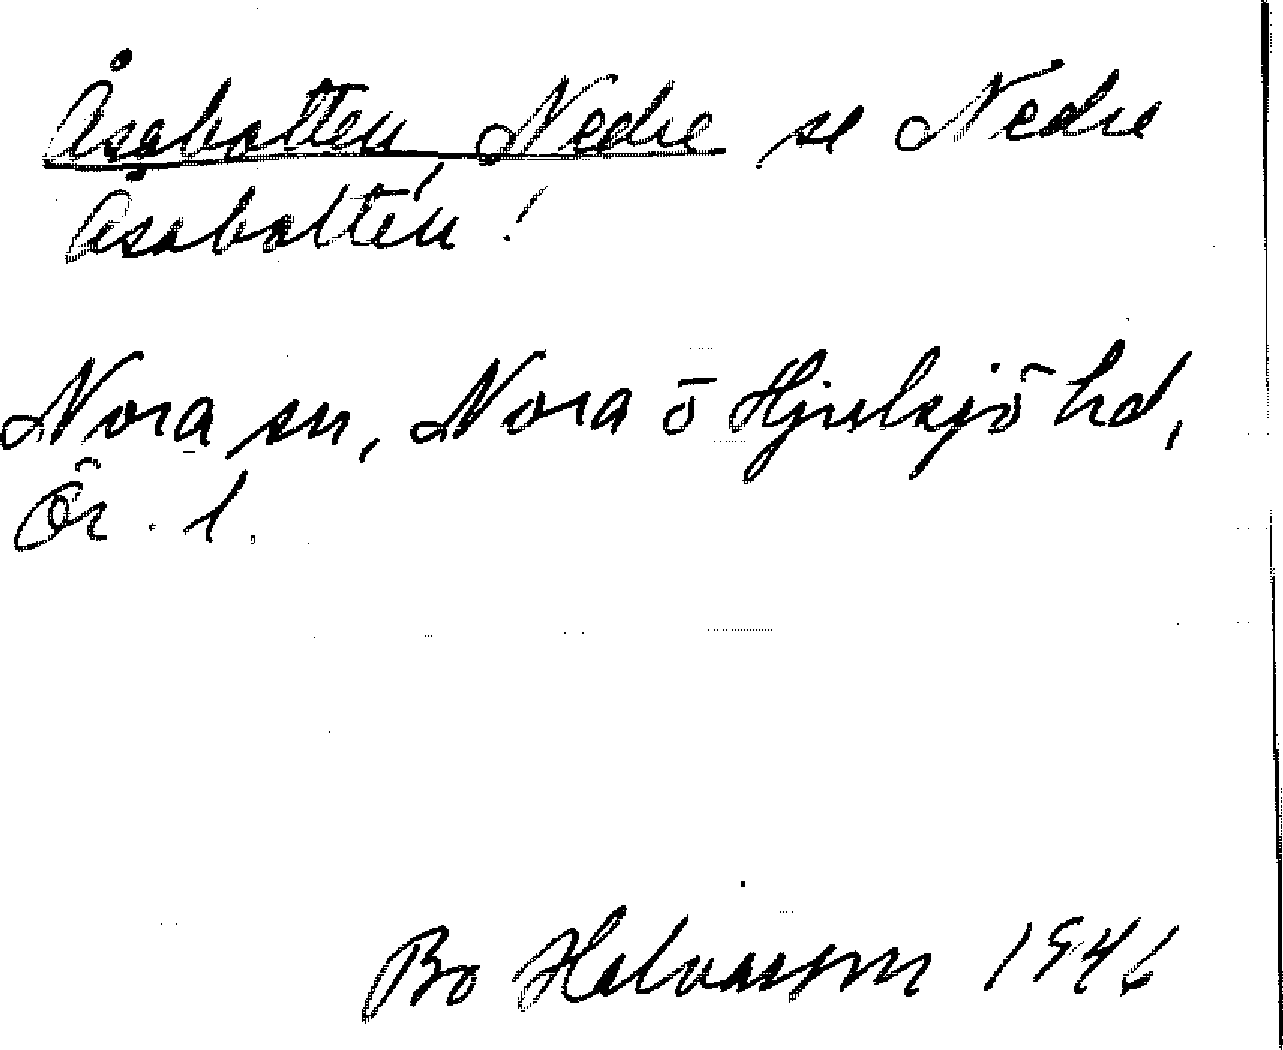 Åsabotten, Nedre se Nedre
Åsabotten!
Nora sn, Nora ō Hjulsjö hd,
Ör. l.
Bo Halvarsson 1946